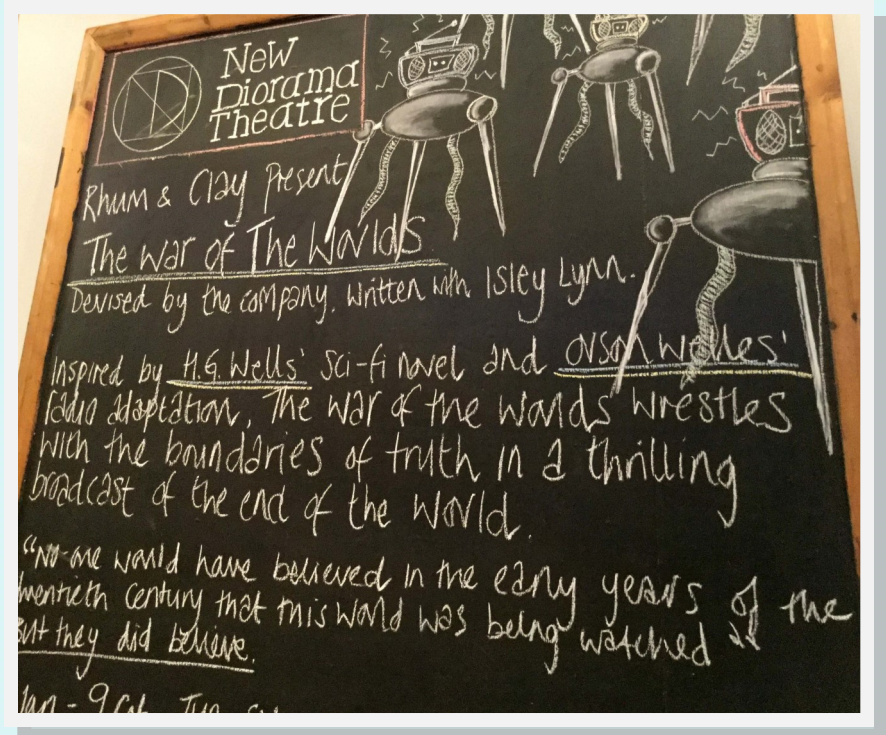 New
Diorama
Theatre
Rhum & Clay Present
The War of The Worlds
Devised by the company, written with Isley Lynn.
Inspired by H.G. Wells' sci-fi novel and Orson Welles'
radio adaptation, The War of the Worlds wrestles
with the boundaries of truth in a thrilling
broadcast of the end of the world.
"No one would have believed in the early years of the
twentieth century that this world was being watched"
But they did believe.
Jan - 9